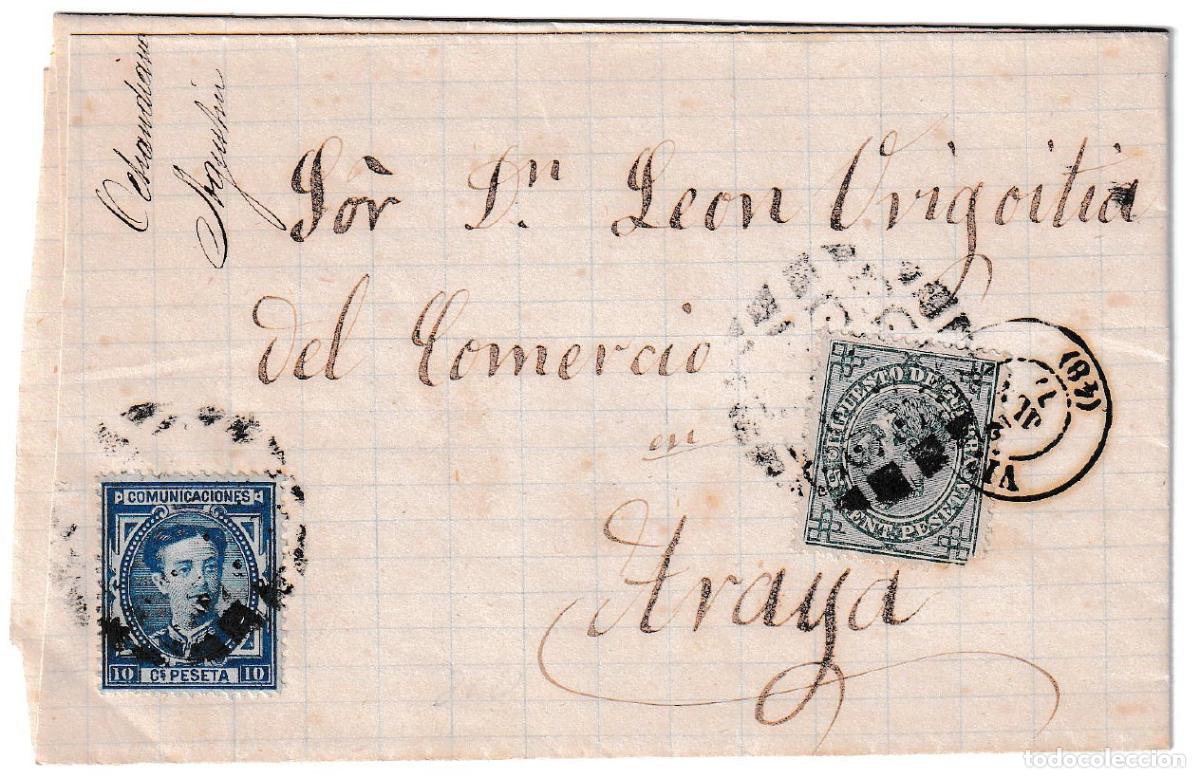 Ochandiano
Agustin
Sor̃ Dⁿ. Leon Urigoitia
del Comercio
en
Araya
COMUNICACIONES
10 Cs PESETA 10
IMPUESTO DE GUERRA
5 CENT. PESETA
(48)
JL
VI
todocoleccion